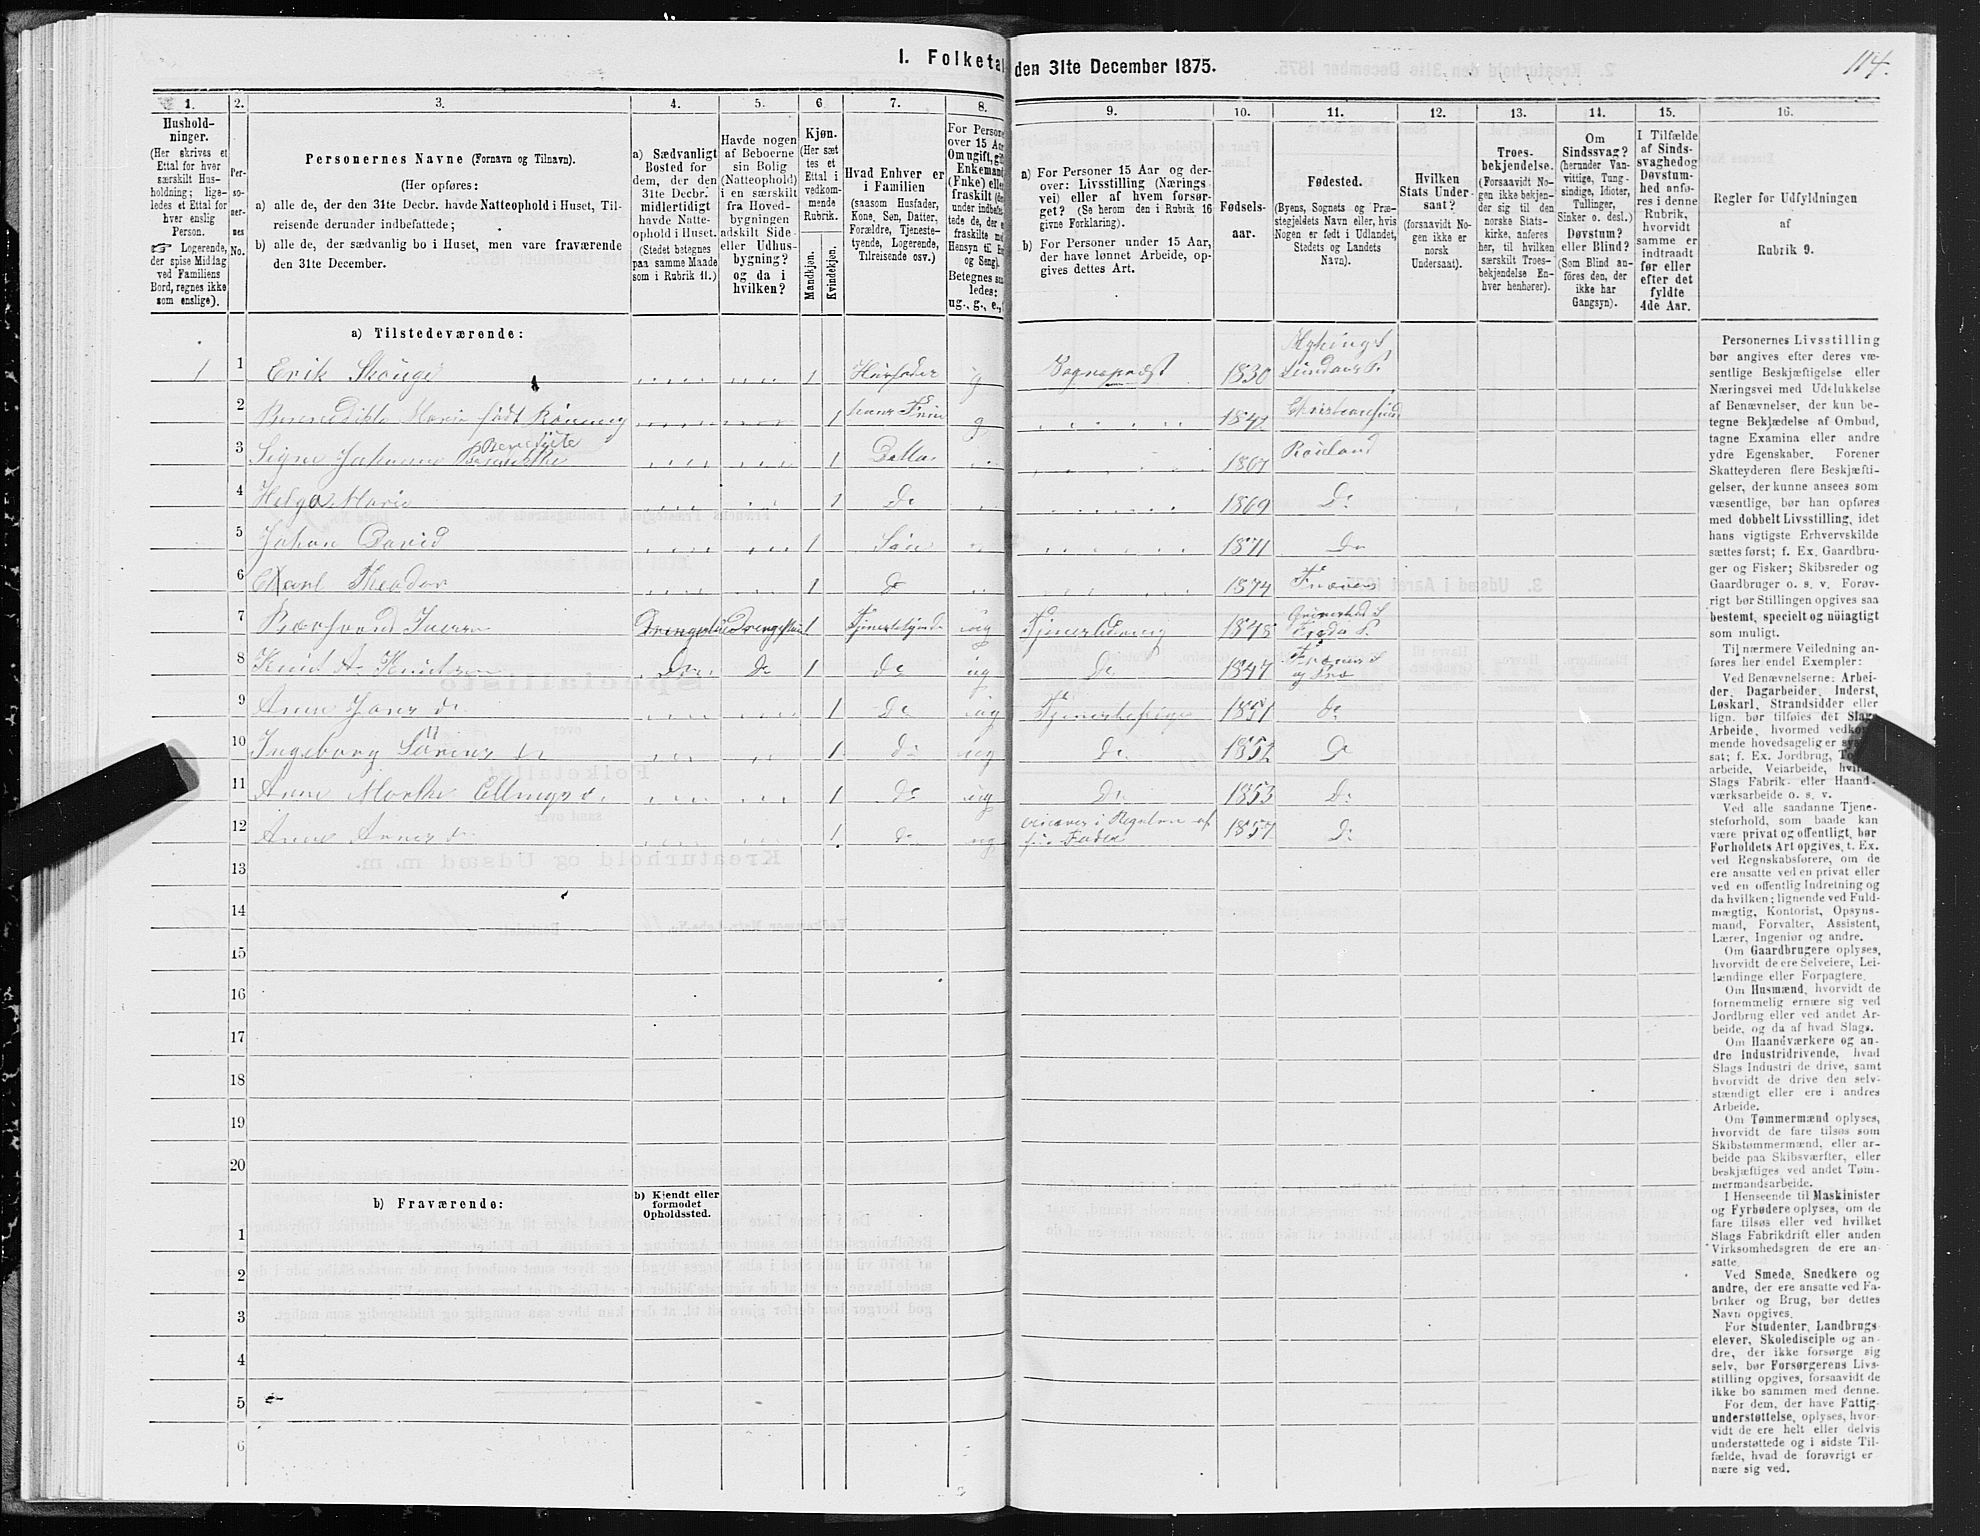 I. Folketal den 31te December 1875.
114.
1.
2.
3.
4.
5.
6
7.
8.
9.
10.
11.
12.
13.
14.
15.
16.
Hushold-
ninger.
(Her skrives et
Ettal for hver
særskilt Hus-
holdning; lige-
ledes et Ettal for
hver enslig
Person.
☞ Logerende,
der spise Middag
ved Familiens
Bord, regnes ikke
som enslige).
Per-
so-
ner-
nes
No.
Personernes Navne (Fornavn og Tilnavn).
(Her opføres:
a) alle de, der den 31te Decbr. havde Natteophold i Huset, Til-
reisende derunder indbefattede;
b) alle de, der sædvanlig bo i Huset, men vare fraværende
den 31te December.
a) Sædvanligt
Bosted for
dem, der den
31te Decbr.
midlertidigt
havde Natte-
ophold i Huset.
(Stedet betegnes
paa samme Maade
som i Rubrik 11.)
Havde nogen
af Beboerne
sin Bolig
(Natteophold)
i en særskilt
fra Hoved-
bygningen
adskilt Side-
eller Udhus-
bygning?
og da i
hvilken?
Kjøn.
(Her sæt
tes et
Ettal i
vedkom-
mende
Rubrik.
Mandkjøn.
Kvindekjøn.
Hvad Enhver er
i Familien
(saasom Husfader,
Kone, Søn, Datter,
Forældre, Tjeneste-
tyende, Logerende,
Tilreisende osv.)
For Persone
over 15 Aar
Om ugift, gift
Enkemand
(Enke) elle
fraskilt (der
under indbefat-
tede de, der e
fraskilte me
Hensyn til Bo
og Seng).
Betegnes saa
ledes:
ug., g., e.,
a) For Personer 15 Aar og der-
over: Livsstilling (Nærings-
vei) eller af hvem forsør-
get? (Se herom den i Rubrik 16
givne Forklaring).
b) For Personer under 15 Aar,
der have lønnet Arbeide, op-
gives dettes Art.
Fødsels-
aar.
Fødested.
(Byens, Sognets og Præ-
stegjeldets Navn eller, hvis
Nogen er født i Udlandet,
Stedets og Landets
Navn).
Hvilken
Stats Under-
saat?
(forsaavidt No-
gen ikke er
norsk
Undersaat).
Troes-
bekjendelse.
(Forsaavidt No-
gen ikke bekjen-
der sig til den
norske Stats-
kirke, anføres
her, til hvilken
særskilt Troes-
bekjendelse En-
hver henhører).
Om
Sindssvag?
(herunder Van-
vittige, Tung-
sindige, Idioter,
Tullinger,
Sinker o. desl.)
Døvstum?
eller Blind?
(Som Blind an-
føres den, der
ikke har
Gangsyn).
I Tilfælde
af Sinds-
svaghedog
Døvstum-
hed anfø-
res i denne
Rubrik,
hvorvidt
samme er
indtraadt
før eller
efter det
fyldte
4de Aar.
Regler for Udfyldningen
af
Rubrik 9.
a) Tilstedeværende:
1 1 Erik Skouge 1 Husfader g Sogneprest 1830 Lundaas P.
2 født Rønning 1 hans Frue g 1842 Christiansund
3 Signe Johanne Benedikte 1 Datter Roiland
4 Helga Marie 1 Do 1869 Do
5 Johan David 1 Søn 1871 Do
6 Carl Theodor 1 Do 1874 Frænen
7 Iversen 1 Tjenestetyende ug 1848
8 Knud A. Knudsen Do Do 1 Do ug Do 1847 Frænen S og Præ
9 Anne Jons d. 1 Do ug Tjenestepige 1851 Do
10 Ingeborg Sørens d. 1 Do ug Do 1852 Do
11 Anne Marthe Ellings d. 1 Do ug Do 1853 Do
12 Anne d. 1 Do ug af sin Fader 1857 Do
13
14
15
16
17
18
19
20
b) Fraværende:
b) Kjendt eller
formodet
Opholdssted.
1
2
3
4
5
6
Personernes Livsstilling
bør angives efter deres væ-
sentlige Beskjæftigelse eller
Næringsvei med Udelukkelse
af Benævnelser, der kun be-
tegne Beklædelse af Ombud,
tagne Examina eller andre
ydre Egenskaber. Forener
Skatteyderen flere Beskjæfti-
gelser, der kunne ansees som
væsentlige, bør han opføres
med dobbelt Livsstilling, idet
hans vigtigste Erhvervskilde
sættes først; f. Ex. Gaardbru-
ger og Fisker; Skibsreder og
Gaardbruger o. s. v. Forøv-
rigt bør Stillingen opgives saa
bestemt, specielt og nøiagtigt
som muligt.
Til nærmere Veiledning an-
føres her endel Exempler:
Ved Benævnelserne: Arbei-
der, Dagarbeider, Inderst,
Løskarl, Strandsidder eller
lign. bør tilføies det Slags
Arbeide, hvormed vedkom-
mende hovedsagelig er syssel-
sat; f. Ex. Jordbrug, Tomt-
arbeide, Veiarbeide, hvilket
Slags Fabrik- eller Haand-
værksarbeide o. s. v.
Ved alle saadanne Tjene-
steforhold, som baade kan
være privat og offentligt, bør
Forholdets Art opgives, t. Ex.
ved Regnskabsførere, om de
ere ansatte ved en privat eller
ved en offentlig Indretning og
da hvilken; lignende ved Fuld-
mægtig, Kontorist, Opsyns-
mand, Forvalter, Assistent,
Lærer, Ingeniør og andre.
Om Gaardbrugere oplyses,
hvorvidt de ere Selveiere, Lei-
lændinge eller Forpagtere.
Om Husmænd, hvorvidt de
fornemmelig ernære sig ved
Jordbrug eller ved andet Ar-
beide, og da af hvad Slags.
Om Haandværkere og an-
dre Industridrivende, hvad
Slags Industri de drive, samt
hvorvidt de drive den selv-
stændigt eller ere i andres
Arbeide.
Om Tømmermænd oplyses,
hvorvidt de fare tilsøs som
Skibstømmermænd, eller ar-
beide paa Skibsværfter, eller
beskjæftiges ved andet Tøm-
mermandsarbeide.
I Henseende til Maskinister
og Fyrbødere oplyses, om de
fare tilsøs eller ved hvilket
Slags Fabrikdrift eller anden
Virksomhedsgren de ere an-
satte.
Ved Smede, Snedkere og
andre, der ere ansatte ved Fa-
briker og Brug, bør dettes
Navn opgives.
For Studenter, Landbrugs-
elever, Skoledisciple og an-
dre, der ikke forsørge sig
selv, bør Forsørgerens Livs-
stilling opgives, forsaavidt de
ikke bo sammen med denne.
For dem, der have Fattig-
understøttelse, oplyses, hvor-
vidt de ere helt eller delvis
understøttede og i sidste Til-
fælde, hvad de forøvrigt er-
nære sig ved.